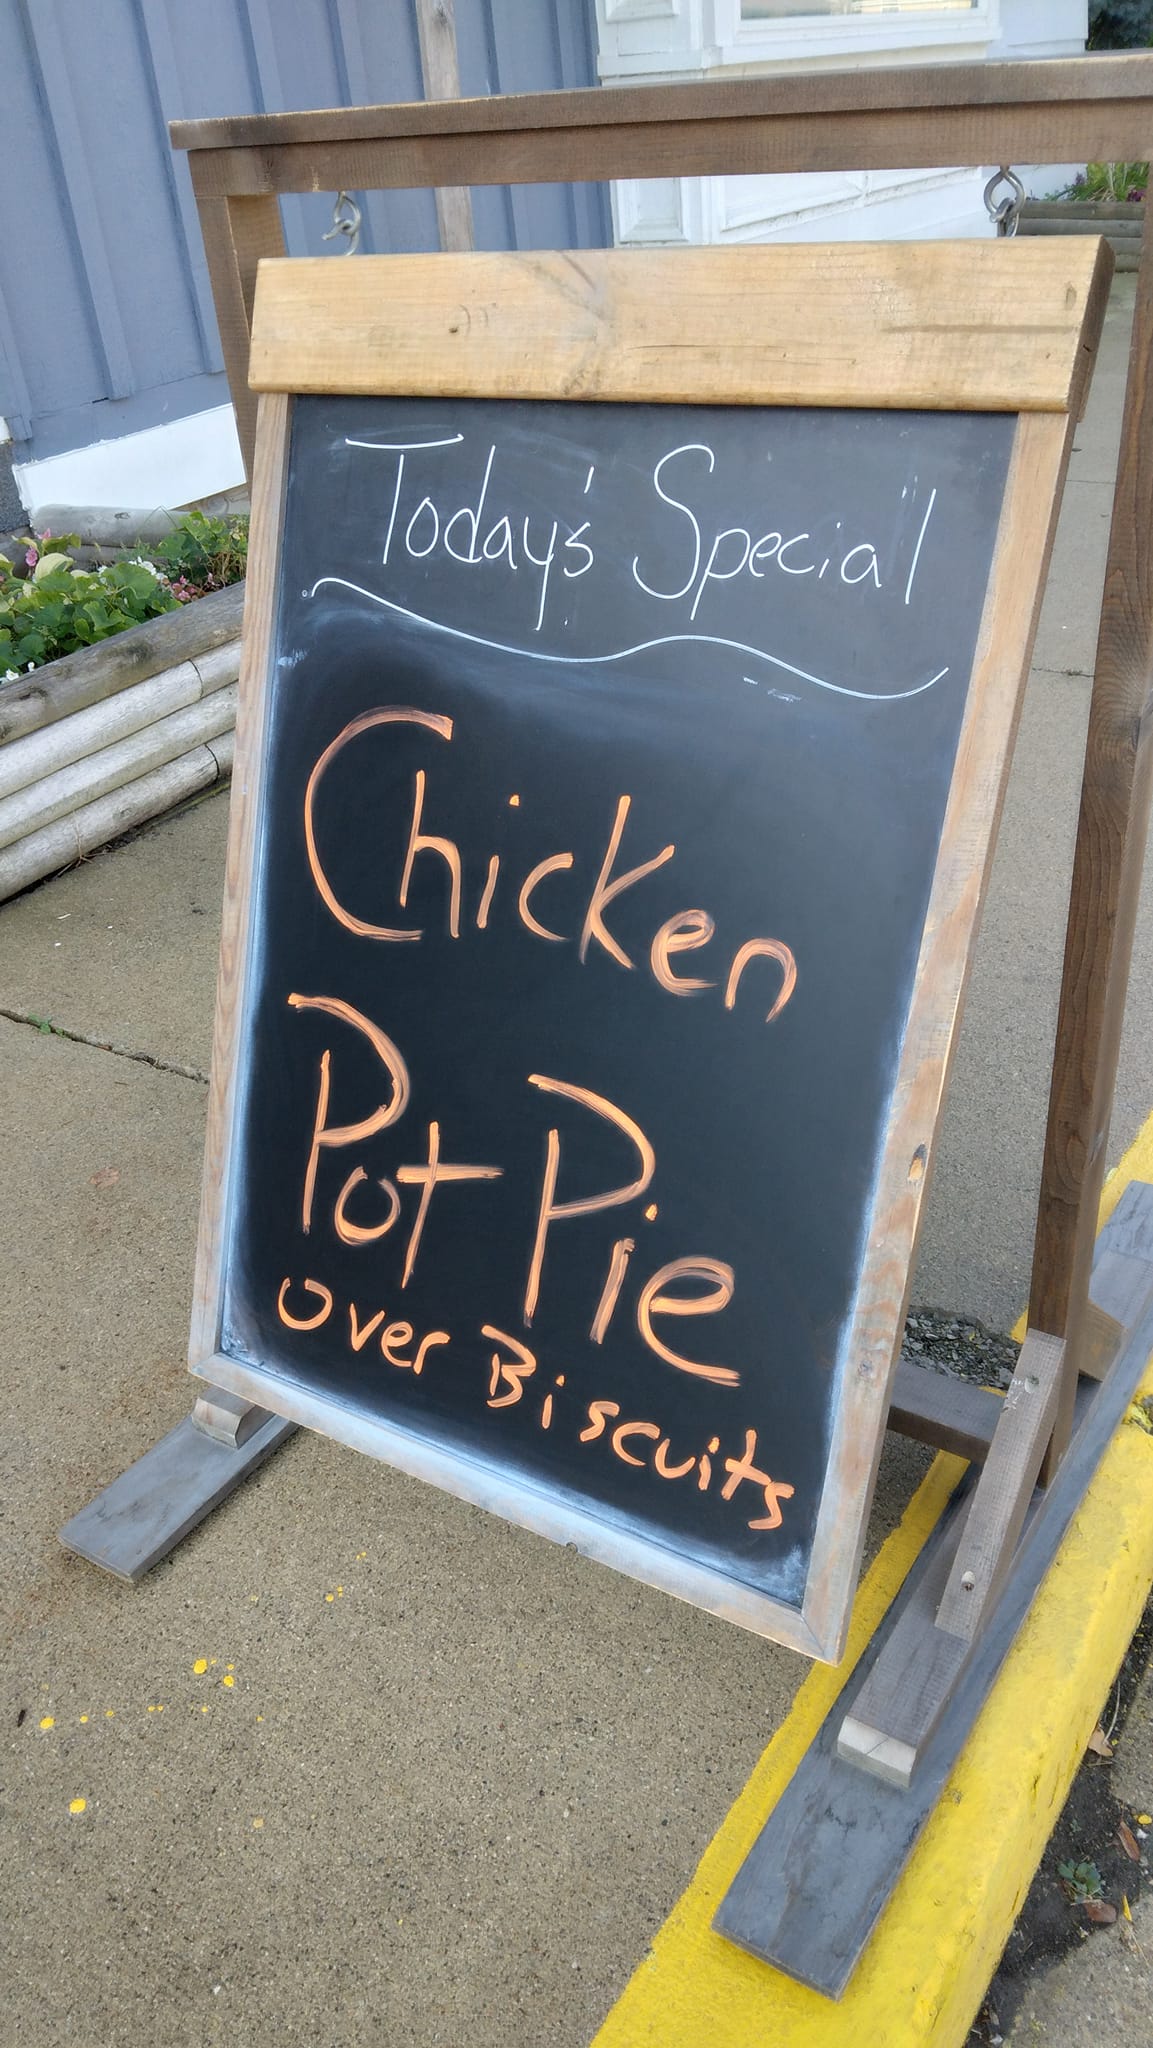 Today's Special
Chicken
Pot Pie
over Biscuits